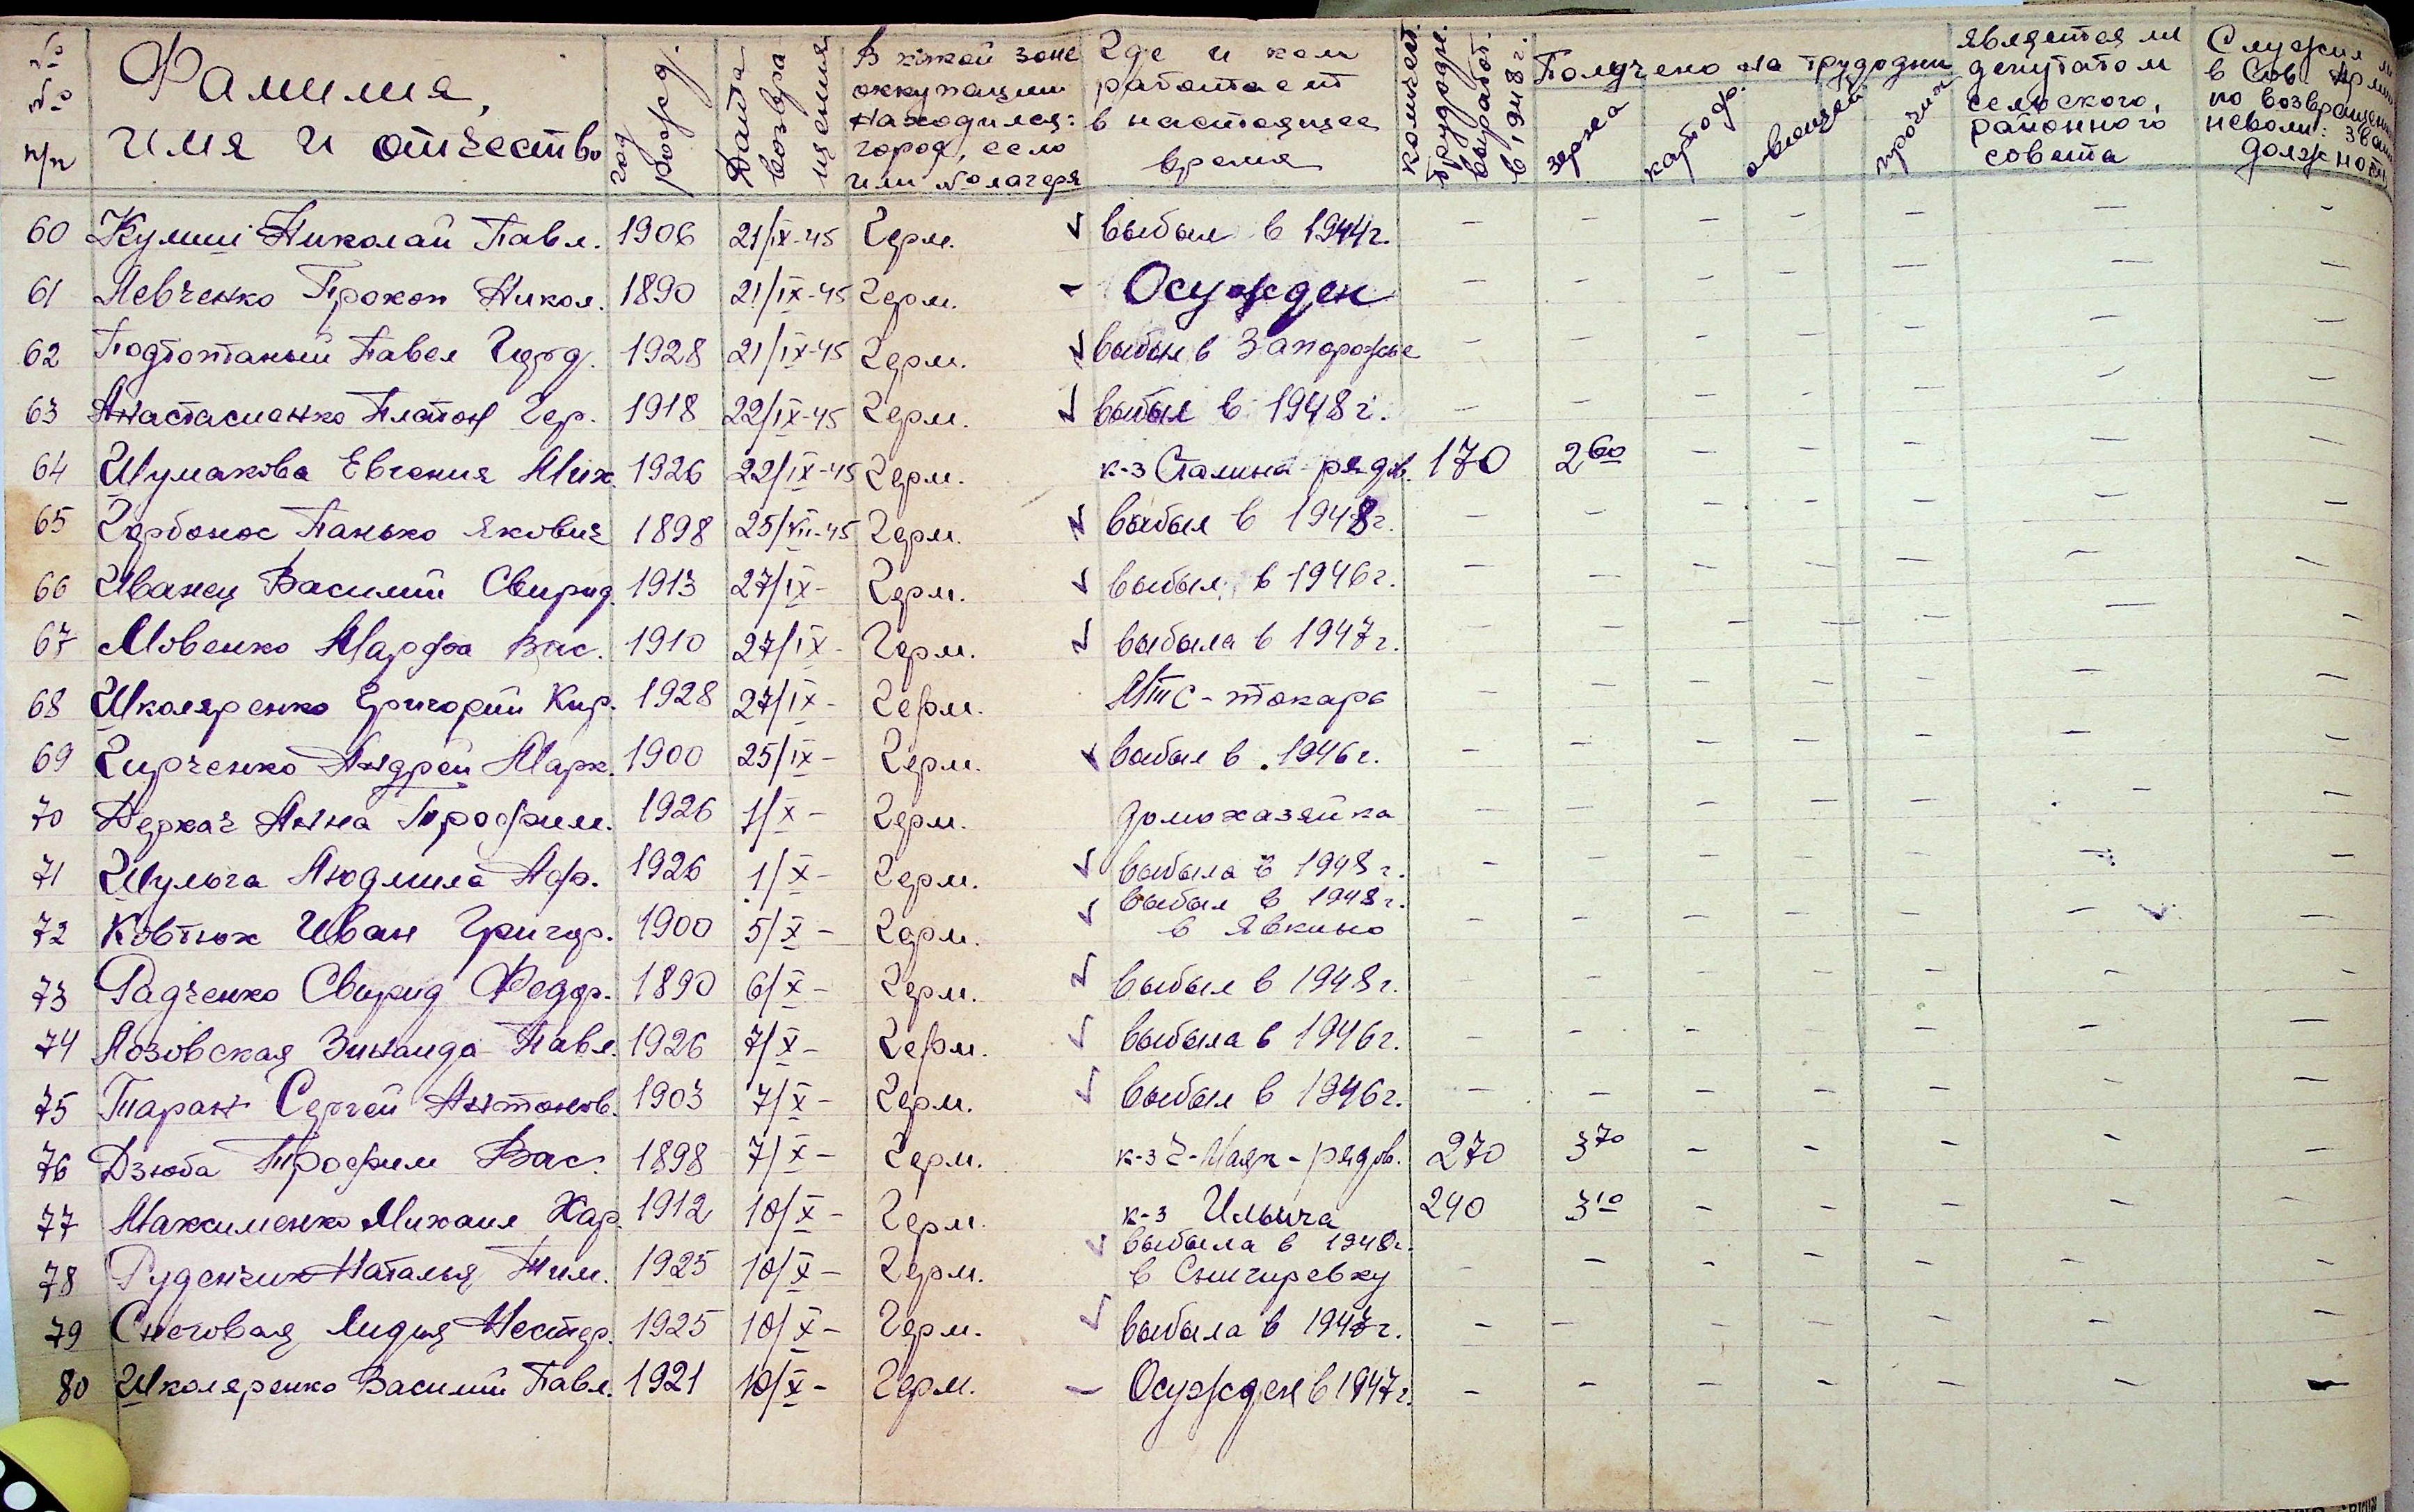 № № п/п | Фамилия, имя и отчество | год рожд. | Дата возвращения | В какой зоне оккупации находился: город, село или № лагеря | Где и кем работает в настоящее время | количест. трудодн. выработ. в 1948 г. | Получено на трудодни | зерна | картоф. | овощей | прочих | является ли депутатом сельского, районного совета | Служил ли в Сов. Армии по возвращении неволи: звание должность
60 Кулиш Николай Павл. 1906 21/IX-45 Герм. ✓ выбыл в 1944г. – – – – – – –
61 Левченко Прокоп Никол. 1890 21/IX-45 Герм. – Осужден – – – – – – –
62 Подтоптаный Павел 1928 21/IX-45 Герм. ✓ выбыл в Запорожье – – – – – – –
63 Анастасиенко Платон Гер. 1918 22/IX-45 Герм. ✓ выбыл в 1948 г. – – – – – – –
64 Шумакова Евгения Мих. 1926 22/IX-45 Герм. к-з Сталина - рядов. 170 2 60 – – – – –
65 Горбонос Панько Якович 1898 25/VII-45 Герм. ✓ выбыл в 1948г. – – – – – – –
66 Иванец Василий Свирид. 1913 27/IX- Герм. ✓ выбыл в 1946г. – – – – – – –
67 Мовенко Марфа Вас. 1910 27/IX- Герм. ✓ выбыла в 1947г. – – – – – – –
68 Школяренко Григорий Кир. 1928 27/IX- Герм. МТС - токарь – – – – – – –
69 Кирченко Андрей Марк. 1900 25/IX- Герм. ✓ выбыл в 1946г. – – – – – – –
70 Деркач Анна Трофим. 1926 1/X- Герм. домохазяйка – – – – – – –
71 Шульга Людмила Аф. 1926 1/X- Герм. ✓ выбыла в 1948 г. – – – – – – –
72 Ковтюх Иван Григор. 1900 5/X- Герм. ✓ выбыл в 1948 г. в Явкино – – – – – – –
73 Радченко Свирид Федор. 1890 6/X- Герм. ✓ выбыл в 1948г. – – – – – – –
74 Лозовская Зинаида Павл. 1926 7/X- Герм. ✓ выбыла в 1946г. – – – – – – –
75 Таран Сергей Антонов. 1903 7/X- Герм. ✓ выбыл в 1946г. – – – – – – –
76 Дзюба Трофим Вас. 1898 7/X- Герм. к-з Ч-Маяк - рядов. 270 3 70 – – – – –
77 Максименко Михаил Хар. 1912 10/X- Герм. к-з Ильича 240 3 10 – – – – –
78 Руденчик Наталья Тим. 1925 10/X- Герм. ✓ выбыла в 1948г. в Снигиревку – – – – – – –
79 Снеговая Лидия Нестер. 1925 10/X- Герм. ✓ выбыла в 1947г. – – – – – – –
80 Школяренко Василий Павл. 1921 10/X- Герм. – Осужден в 1947г. – – – – – – –